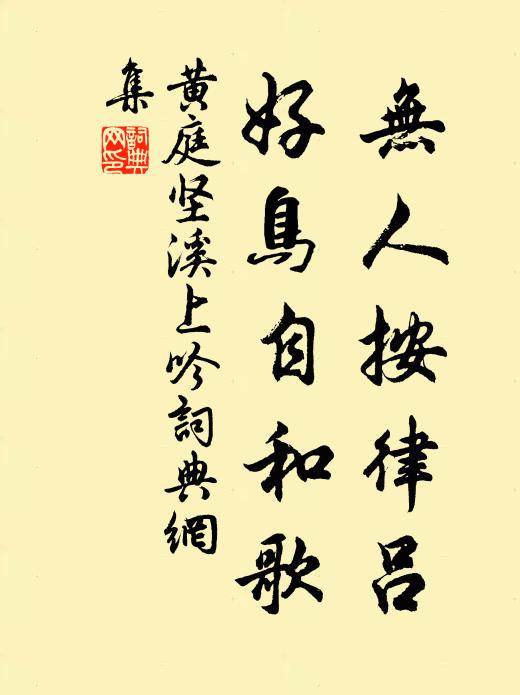 無人按律呂
好鳥自和歌
黄庭坚溪上吟詞典網
集
詞典
网印